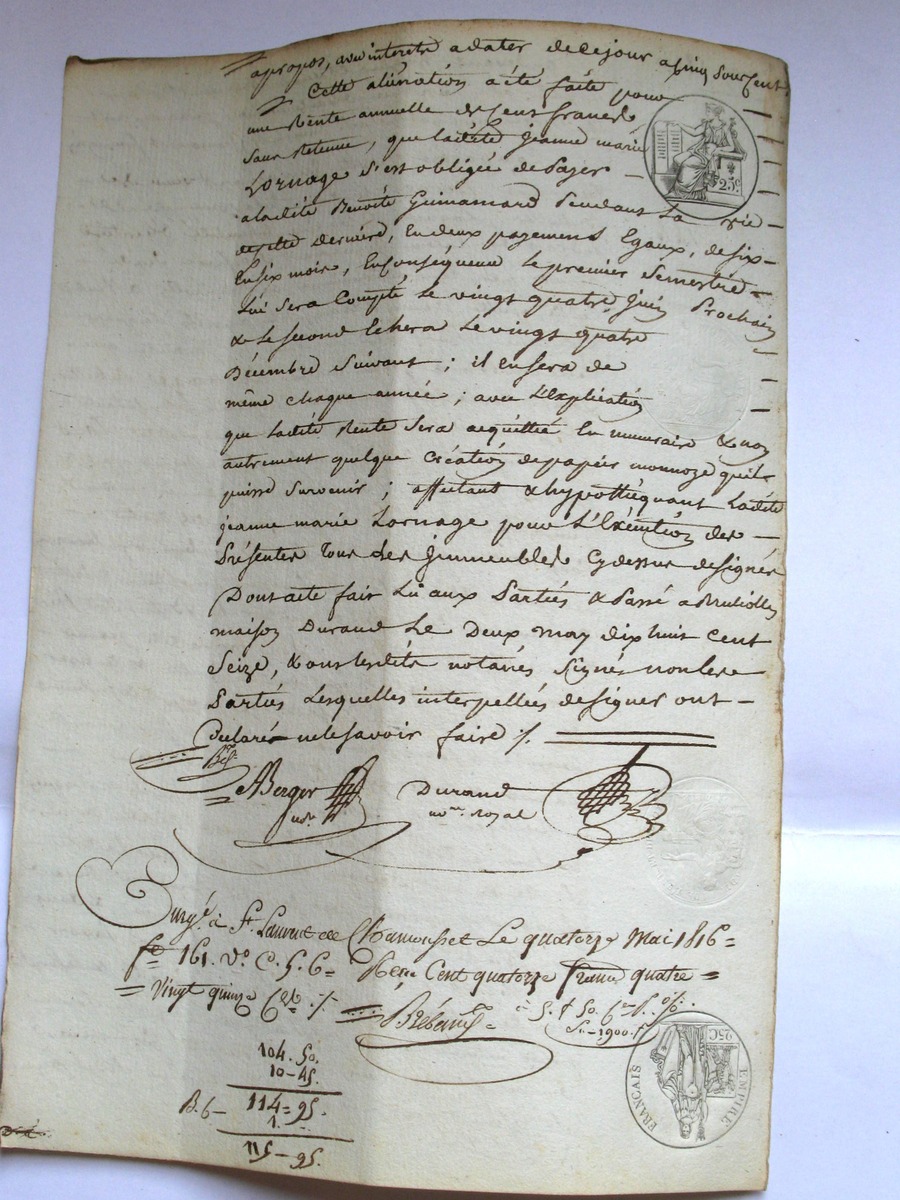 apropos, avec interets a dater de ce jour a Cinq pour Cent.
Cette alienation a été faite pour
une Rente annuelle de Cent francs
Sans Retenue, que ladite Jeanne marie
Lornage s'est obligée de Payer
a ladite Benoite Guinamard Pendant La vie
de cette derniere, En deux payements Egaux, de six
En six mois, En Conséquence Le premier Semestre
Lui sera Compté Le vingt quatre Juin Prochain
& Le second Echera Le vingt quatre
Décembre Suivant ; il En sera de
même chaque année ; avec L'Explication
que Ladite Rente sera acquittée En numeraire & non
autrement quelque Création de papier monnoye qu'il
puisse survenir ; affectant & hypothéquant Ladite
jeanne marie Lornage pour L'Exécution des
Présentes Tous Les Immeubles Cy dessus designés
Dont acte fait Lu aux Parties & Passé a
maison Durand Le Deux may dix huit Cent
Seize, & ont Lesdits notaires Signés non Les
Parties Lesquelles interpellées de signer ont
Déclaré ne le savoir faire ./.
Berger Durand
no.re Royal
Enrg.é à St. Laurent de Chamousset Le quatorze Mai 1816
f.o 161. V.o C. 5. 6 Reçu Cent quatorze francs quatre
Vingt quinze C.es ./.
à 5. f 50. C. P. %.
1900. f
104. 50.
10-45.
B. 6- 114=95.
1.
115-95.
25.C
EMPIRE FRANCAIS
25C